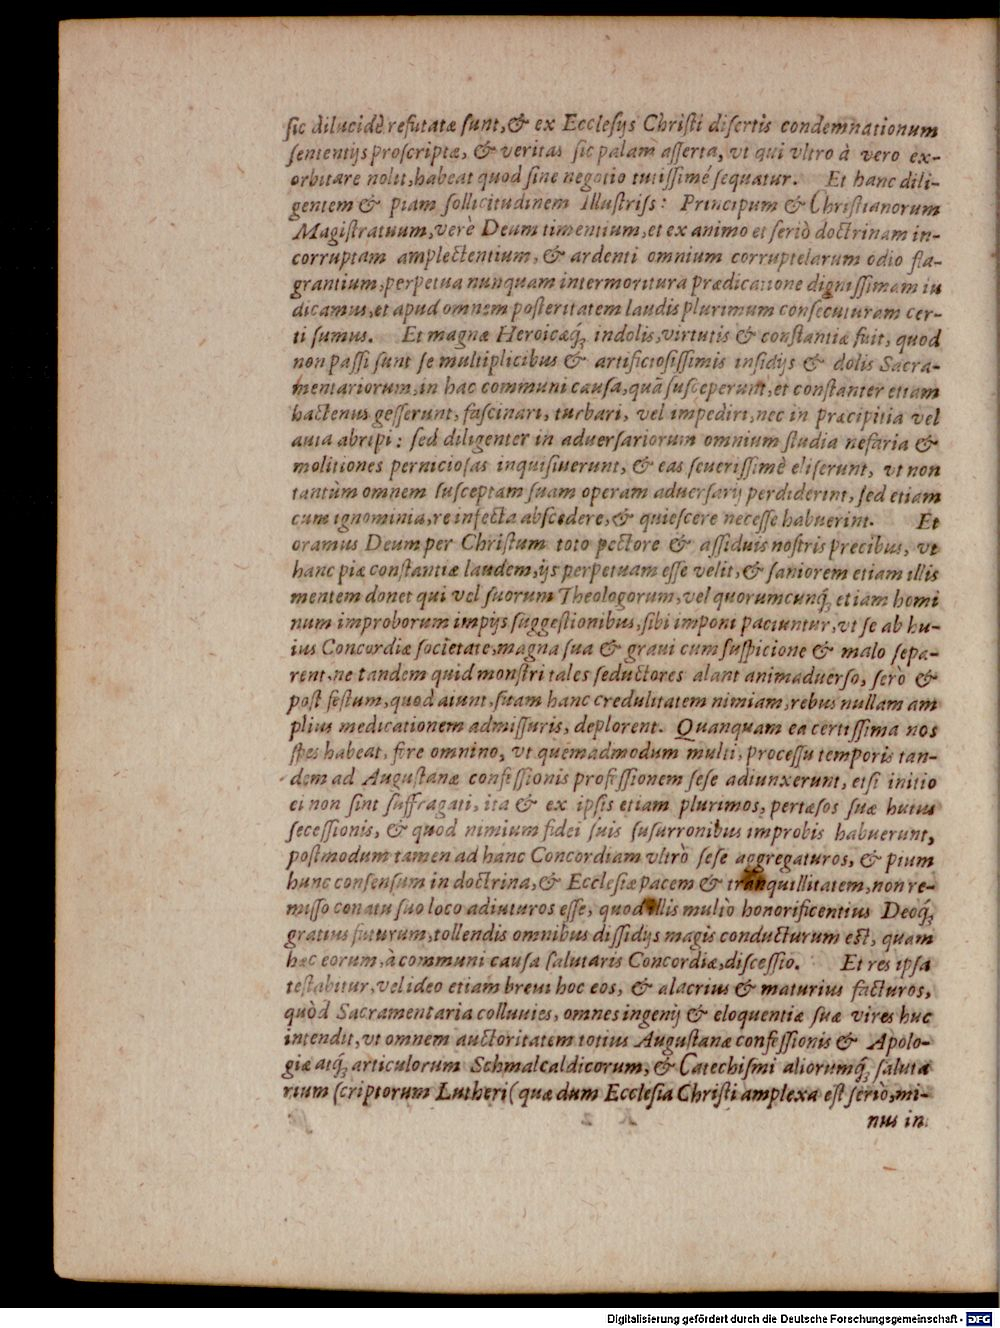 ſic dilucidè refutatæ ſunt, & ex Eccleſijs Chriſti diſertis condemnationum
ſententijs proſcriptæ, & veritas ſic palam aſſerta, vt qui vltro à vero ex-
orbitare nolit, habeat quod ſine negotio tutiſſimé ſequatur. Et hanc dili-
gentem & piam ſollicitudinem Illuſtriſs: Principum & Chriſtianorum
Magiſtratuum, verè Deum timentium, et ex animo et ſeriò doctrinam in-
corruptam amplectentium, & ardenti omnium corruptelarum odio fla-
grantium, perpetua nunquam intermoritura prædicatione digniſſimam iu
dicamus, et apud omnem poſteritatem laudis plurimum conſecuturam cer-
ti ſumus. Et magnæ Heroicæq́; indolis, virtutis & conſtantiæ fuit, quod
non paſſi ſunt ſe multiplicibus & artificioſiſſimis inſidijs & dolis Sacra-
mentariorum, in hac communi cauſa, quā ſuſceperunt, et conſtanter etiam
hactenus geſſerunt, faſcinari, turbari, vel impediri, nec in præcipitia vel
auia abripi: ſed diligenter in aduerſariorum omnium ſtudia nefaria &
molitiones pernicioſas inquiſiuerunt, & eas ſeueriſſimè eliſerunt, vt non
tantùm omnem ſuſceptam ſuam operam aduerſarij perdiderint, ſed etiam
cum ignominia, re infecta abſcedere, & quieſcere neceſſe habuerint. Et
oramus Deum per Chriſtum toto pectore & aſſiduis noſtris precibus, vt
hanc piæ conſtantiæ laudem, ijs perpetuam eſſe velit, & ſaniorem etiam illis
mentem donet qui vel ſuorum Theologorum, vel quorumcunq́; etiam homi
num improborum impijs ſuggeſtionibus, ſibi imponi patiuntur, vt ſe ab hu-
ius Concordiæ ſocietate, magna ſua & graui cum ſuſpicione & malo ſepa-
rent, ne tandem quid monſtri tales ſeductores alant animaduerſo, ſerò &
poſt feſtum, quod aiunt, ſuam hanc credulitatem nimiam, rebus nullam am
plius medicationem admiſſuris, deplorent. Quanquam ea certiſſima nos
ſpes habeat, fore omnino, vt quemadmodum multi, proceſſu temporis tan-
dem ad Auguſtanæ confeſſionis profeſſionem ſeſe adiunxerunt, etſi initio
ei non ſint ſuffragati, ita & ex ipſis etiam plurimos, pertæſos ſuæ huius
ſeceſſionis, & quod nimium fidei ſuis ſuſurronibus improbis habuerunt,
poſtmodum tamen ad hanc Concordiam vltrò ſeſe aggregaturos, & pium
hunc conſenſum in doctrina, & Eccleſiæ pacem & tranquillitatem, non re-
miſſo conatu ſuo loco adiuturos eſſe, quod illis multò honorificentius Deoq́;
gratius futurum, tollendis omnibus diſſidijs magis conducturum eſt, quam
hæc eorum, à communi cauſa ſalutaris Concordiæ, diſceſſio. Et res ipſa
teſtabitur, vel ideo etiam breui hoc eos, & alacrius & maturius facturos,
quòd Sacramentaria colluuies, omnes ingenij & eloquentiæ ſuæ vires huc
intendit, vt omnem auctoritatem totius Auguſtanæ confeſſionis & Apolo-
giæ atq́; articulorum Schmalcaldicorum, & Catechiſmi aliorumq́; ſaluta
rium ſcriptorum Lutheri (quæ dum Eccleſia Chriſti amplexa eſt ſeriò, mi-
nus in
Digitalisierung gefördert durch die Deutsche Forschungsgemeinschaft - DFG